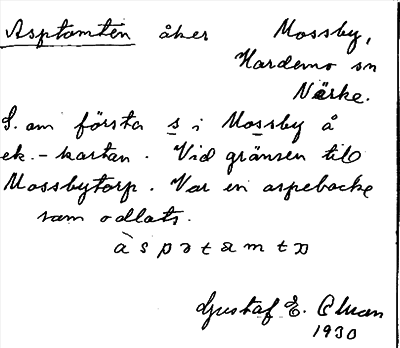 Asptomten åker Mossby,
Hardemo sn
Närke.
S. om första s i Mossby å
ek.-kartan. Vid gränsen till
Mossbytorp. Var en aspebacke
som odlats.
àspətamtɷ
Gustaf E. Ohman
1930